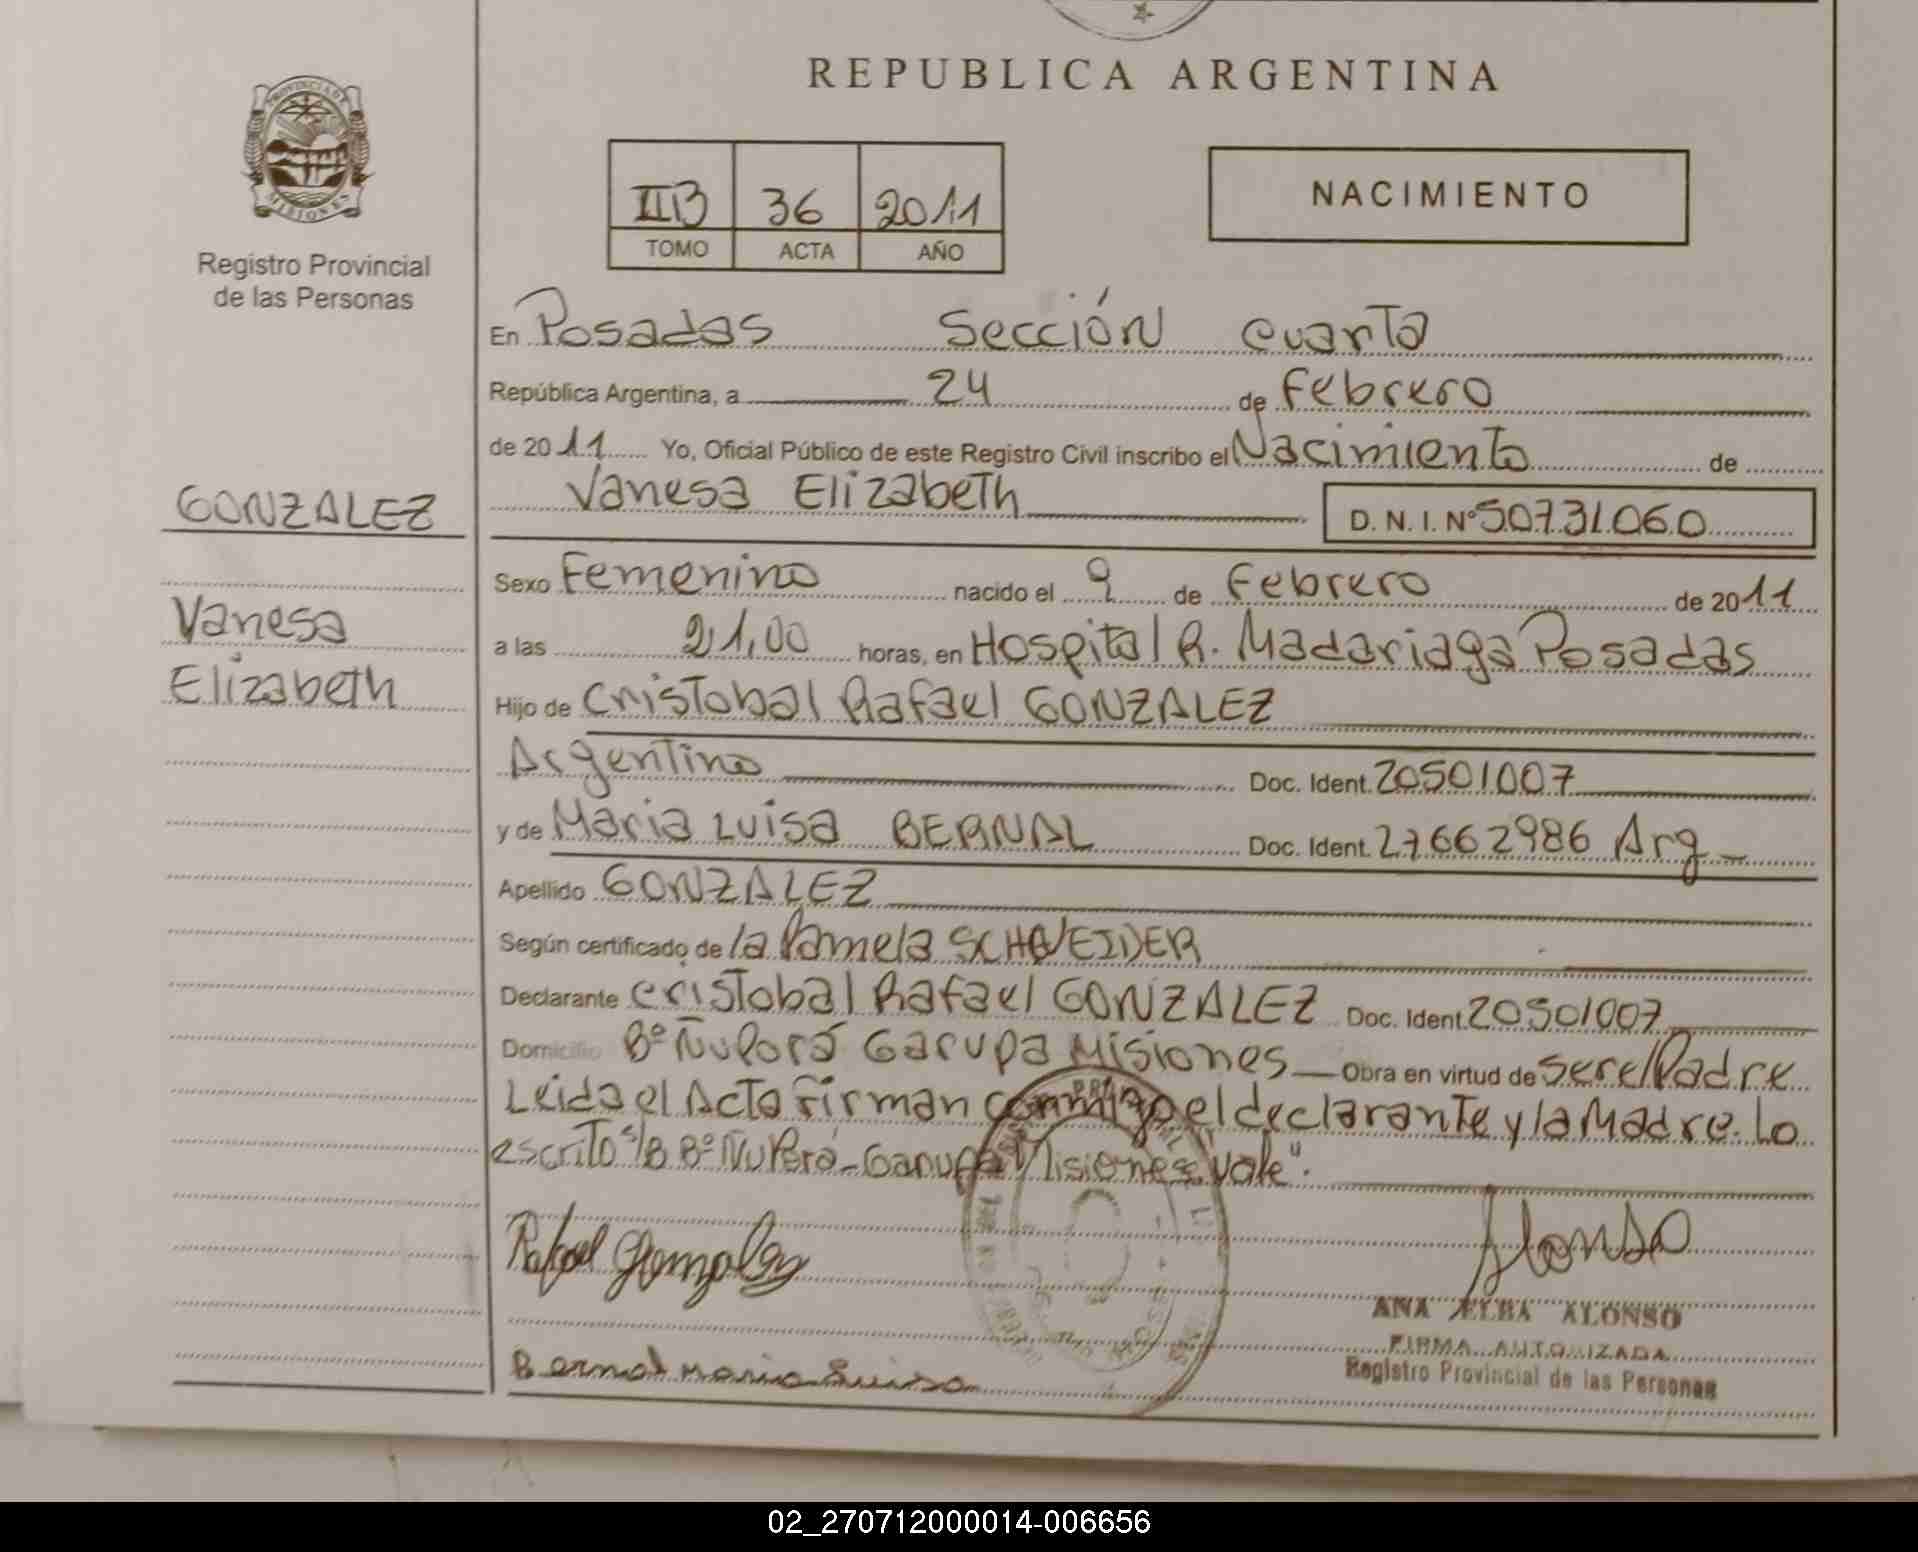 REPUBLICA ARGENTINA
PROVINCIA DE
MISIONES
Registro Provincial
de las Personas
IIB 36 2011
TOMO ACTA AÑO
NACIMIENTO
GONZALEZ
Vanesa
Elizabeth
En Posadas Sección Cuarta
República Argentina, a 24 de Febrero
de 2011 Yo, Oficial Público de este Registro Civil inscribo el Nacimiento de
Vanesa Elizabeth D. N. I. Nº 50731060
Sexo Femenino nacido el 9 de Febrero de 2011
a las 21,00 horas, en Hospital R. Madariaga Posadas
Hijo de Cristobal Rafael GONZALEZ
Argentino Doc. Ident. 20501007
y de Maria Luisa BERNAL Doc. Ident. 27662986 Arg
Apellido GONZALEZ
Según certificado de la Pamela SCHVEIDER
Declarante Cristobal Rafael GONZALEZ Doc. Ident. 20501007
Domicilio Bº Ñu Porá Garupa Misiones Obra en virtud de ser el Padre
Leida el Acta Firman conmigo el declarante y la Madre. Lo
escrito s/B Bº Ñu Porá - Garupa Misiones Vale".
Rafael Gonzalez
Alonso
ANA ELBA ALONSO
FIRMA AUTORIZADA
Registro Provincial de las Personas
Bernal Maria Luisa
02_270712000014-006656